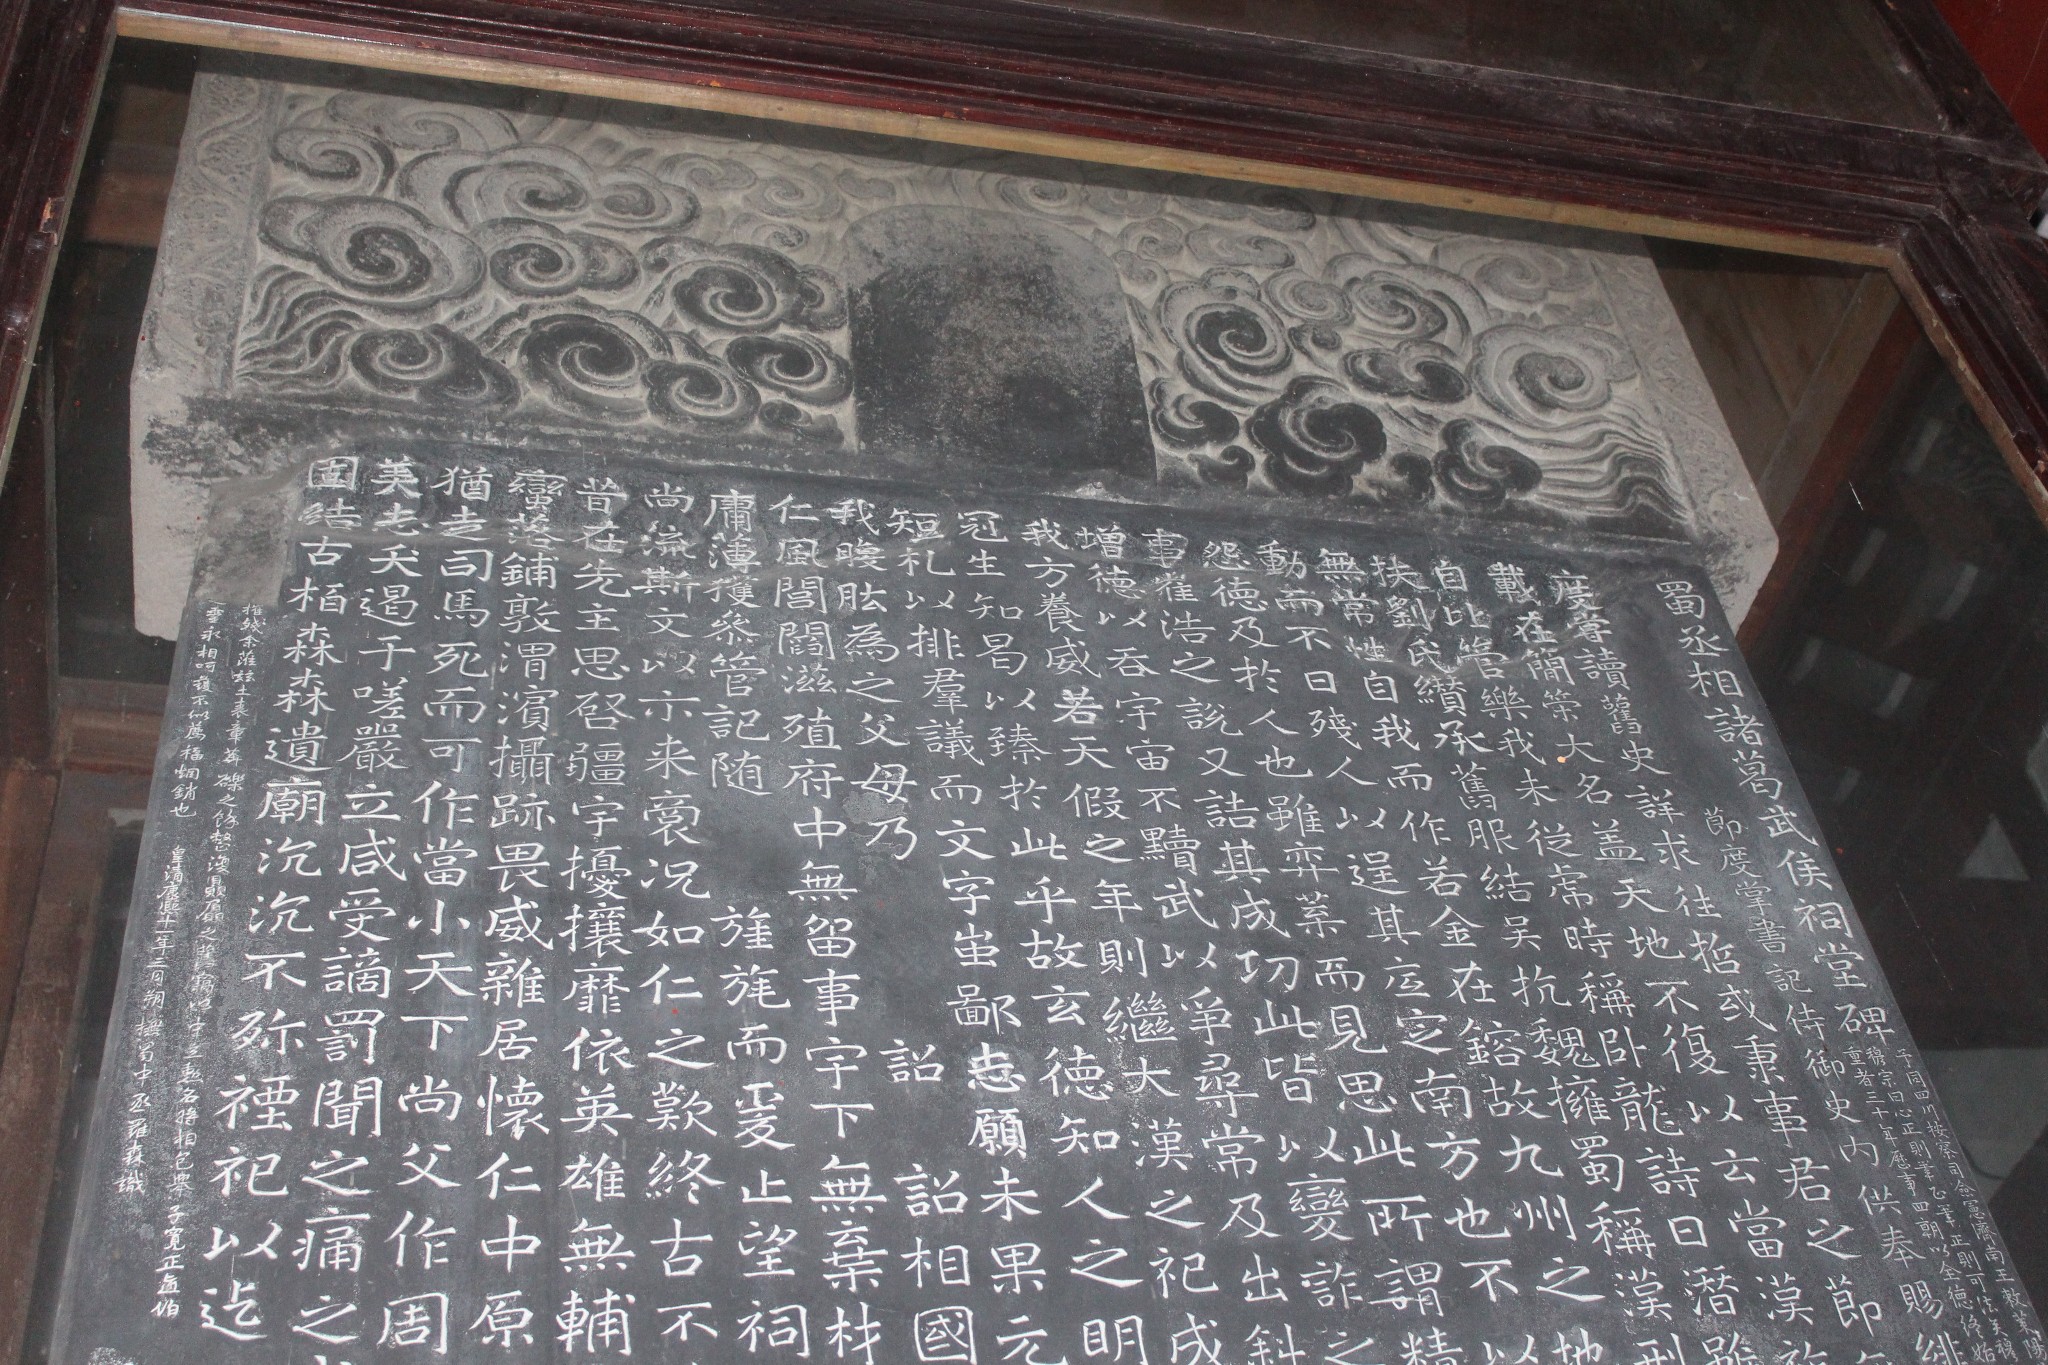 蜀丞相諸葛武侯祠堂碑
節度掌書記侍御史内供奉賜緋
度嘗讀舊史詳求往哲或秉事君之節
載在簡策大名盖天地不復以云當漢祚
自比管樂我未從虛時稱卧龍詩曰潛雖
扶劉氏纘承舊服結吴抗魏擁蜀稱漢刑
無常性自我而作若金在鎔故九州之地
動而不曰殘人以逞其立定南方也不以
怨德及於人也雖弈葉而見思此所謂精
事崔浩之說又詰其成功此皆以變詐之
增德以吞宇宙不黷武以爭尋常及出斜
我方養威若天假之年則繼大漢之祀成
冠生知曷以臻於此乎故玄德知人之明
短札以排羣議而文字蚩鄙志願未果元
我腹肱為之父母乃 詔 詔相國
仁風閭閻滋殖府中無留事宇下無棄材
庸薄獲參管記随 旌旄而爰止望祠
尚流斯文以示来裔況如仁之歎終古不
昔在先主思啓疆宇擾攘靡依英雄無輔
蠻落鋪敦渭濱攝跡畏威雜居懷仁中原
猶走司馬死而可作當小天下尚父作周
美志矣遏于嗟嚴立咸受謫罰聞之痛之
固結古栢森森遺廟沉沉不殄禋祀以迄
皇清康熙十年三月朔 撫蜀中丞羅森識